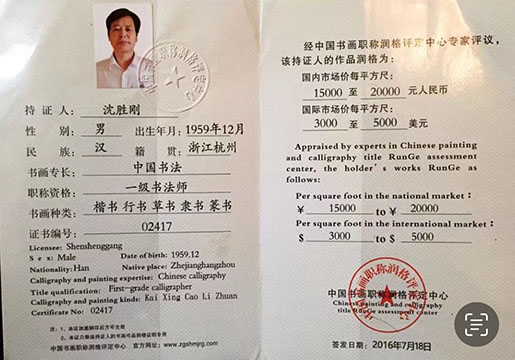 中国书画职称润格评定中心
持 证 人： 沈胜刚
性 别： 男 出生年月：1959年12月
民 族： 汉 籍 贯：浙江杭州
书画专长： 中国书法
职称资格： 一级书法师
书画种类： 楷书 行书 草书 隶书 篆书
证书编号： 02417
Licensee: Shenshenggang
Sex: Male Date of birth: 1959.12
Nationality:Han Native place: Zhejianghangzhou
Calligraphy and painting expertise: Chinese calligraphy
Title qualification: First-grade calligrapher
Calligraphy and painting kinds: Kai Xing Cao Li Zhuan
Certificate No: 02417
注：1、本证加盖钢印后方可生效
2、本证只限该持证人的书画作品润格证明专用
中国书画职称润格评定中心 官方网址：www.zgshmjrg.com
经中国书画职称润格评定中心专家评议，
该持证人的作品润格为：
国内市场价每平方尺：
15000 至 20000 元人民币
国际市场价每平方尺：
3000 至 5000 美元
Appraised by experts in Chinese painting
and calligraphy title RunGe assessment
center, the holder's works RunGe as
follows:
Per square foot in the national market:
¥ 15000 to ¥ 20000
Per square foot in the international market:
$ 3000 to $ 5000
中国书画职称润格评定中心
中国书画职称润格评定中心
Chinese painting and calligraphy
title RunGe assessment center
发证日期：2016年7月18日